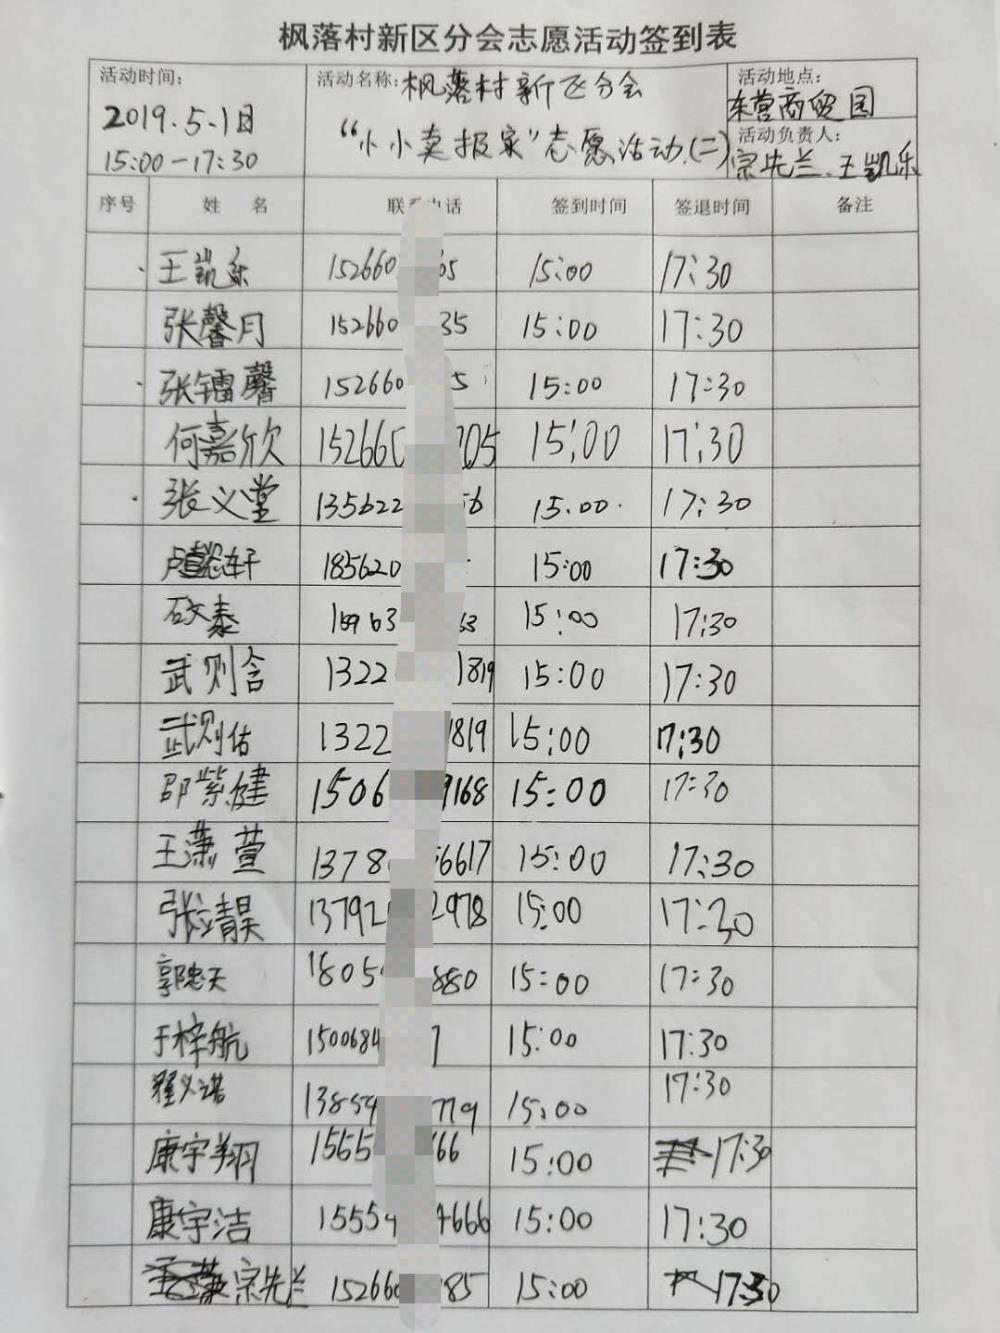 枫落村新区分会志愿活动签到表
活动时间: 活动名称:枫落村新区分会 活动地点:
2019.5.1日 东营商贸园
15:00-17:30 “小小卖报家”志愿活动(二) 活动负责人:
宗先兰、王凯乐
序号 姓 名 联系电话 签到时间 签退时间 备注
王凯乐 152660 65 15:00 17:30
张馨月 152660 35 15:00 17:30
张镭馨 152660 5 15:00 17:30
何嘉欣 152660 705 15:00 17:30
张义堂 135622 56 15:00 17:30
卢 轩 185620 15:00 17:30
63 15:00 17:30
武则含 1322 1819 15:00 17:30
武则佑 1322 1819 15:00 17:30
邵紫健 1506 9168 15:00 17:30
王潇萱 1378 6617 15:00 17:30
张靖昊 13792 2978 15:00 17:30
郭 天 1805 880 15:00 17:30
于梓航 1500684 7 15:00 17:30
翟义诺 13854 779 15:00 17:30
康宇翔 1555 666 15:00 17:30
康宇洁 15554 4666 15:00 17:30
宗先兰 152660 785 15:00 17:30